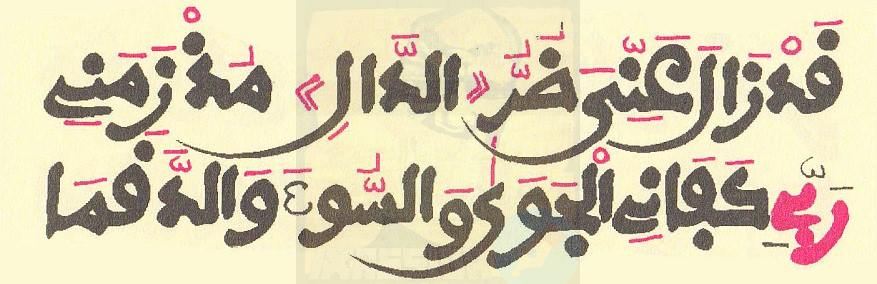 قَدْ زَالَ عَنِّىَ ضُرُّ «الدَّالِ» مُذْ زَمَنِي
رَبِّي كَفَانِي الْجَوَى وَالسُّوءَ وَالدَّ فَمَا